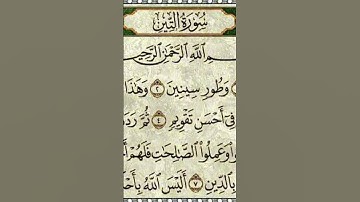 سُورَةُ التِّينِ
اللَّهِ الرَّحْمَٰنِ الرَّحِيمِ
وَطُورِ سِينِينَ ٢ وَهَٰذَا
فِي أَحْسَنِ تَقْوِيمٍ ٤ ثُمَّ
وَعَمِلُوا الصَّالِحَاتِ فَلَهُمْ
بِالدِّينِ ٧ أَلَيْسَ اللَّهُ